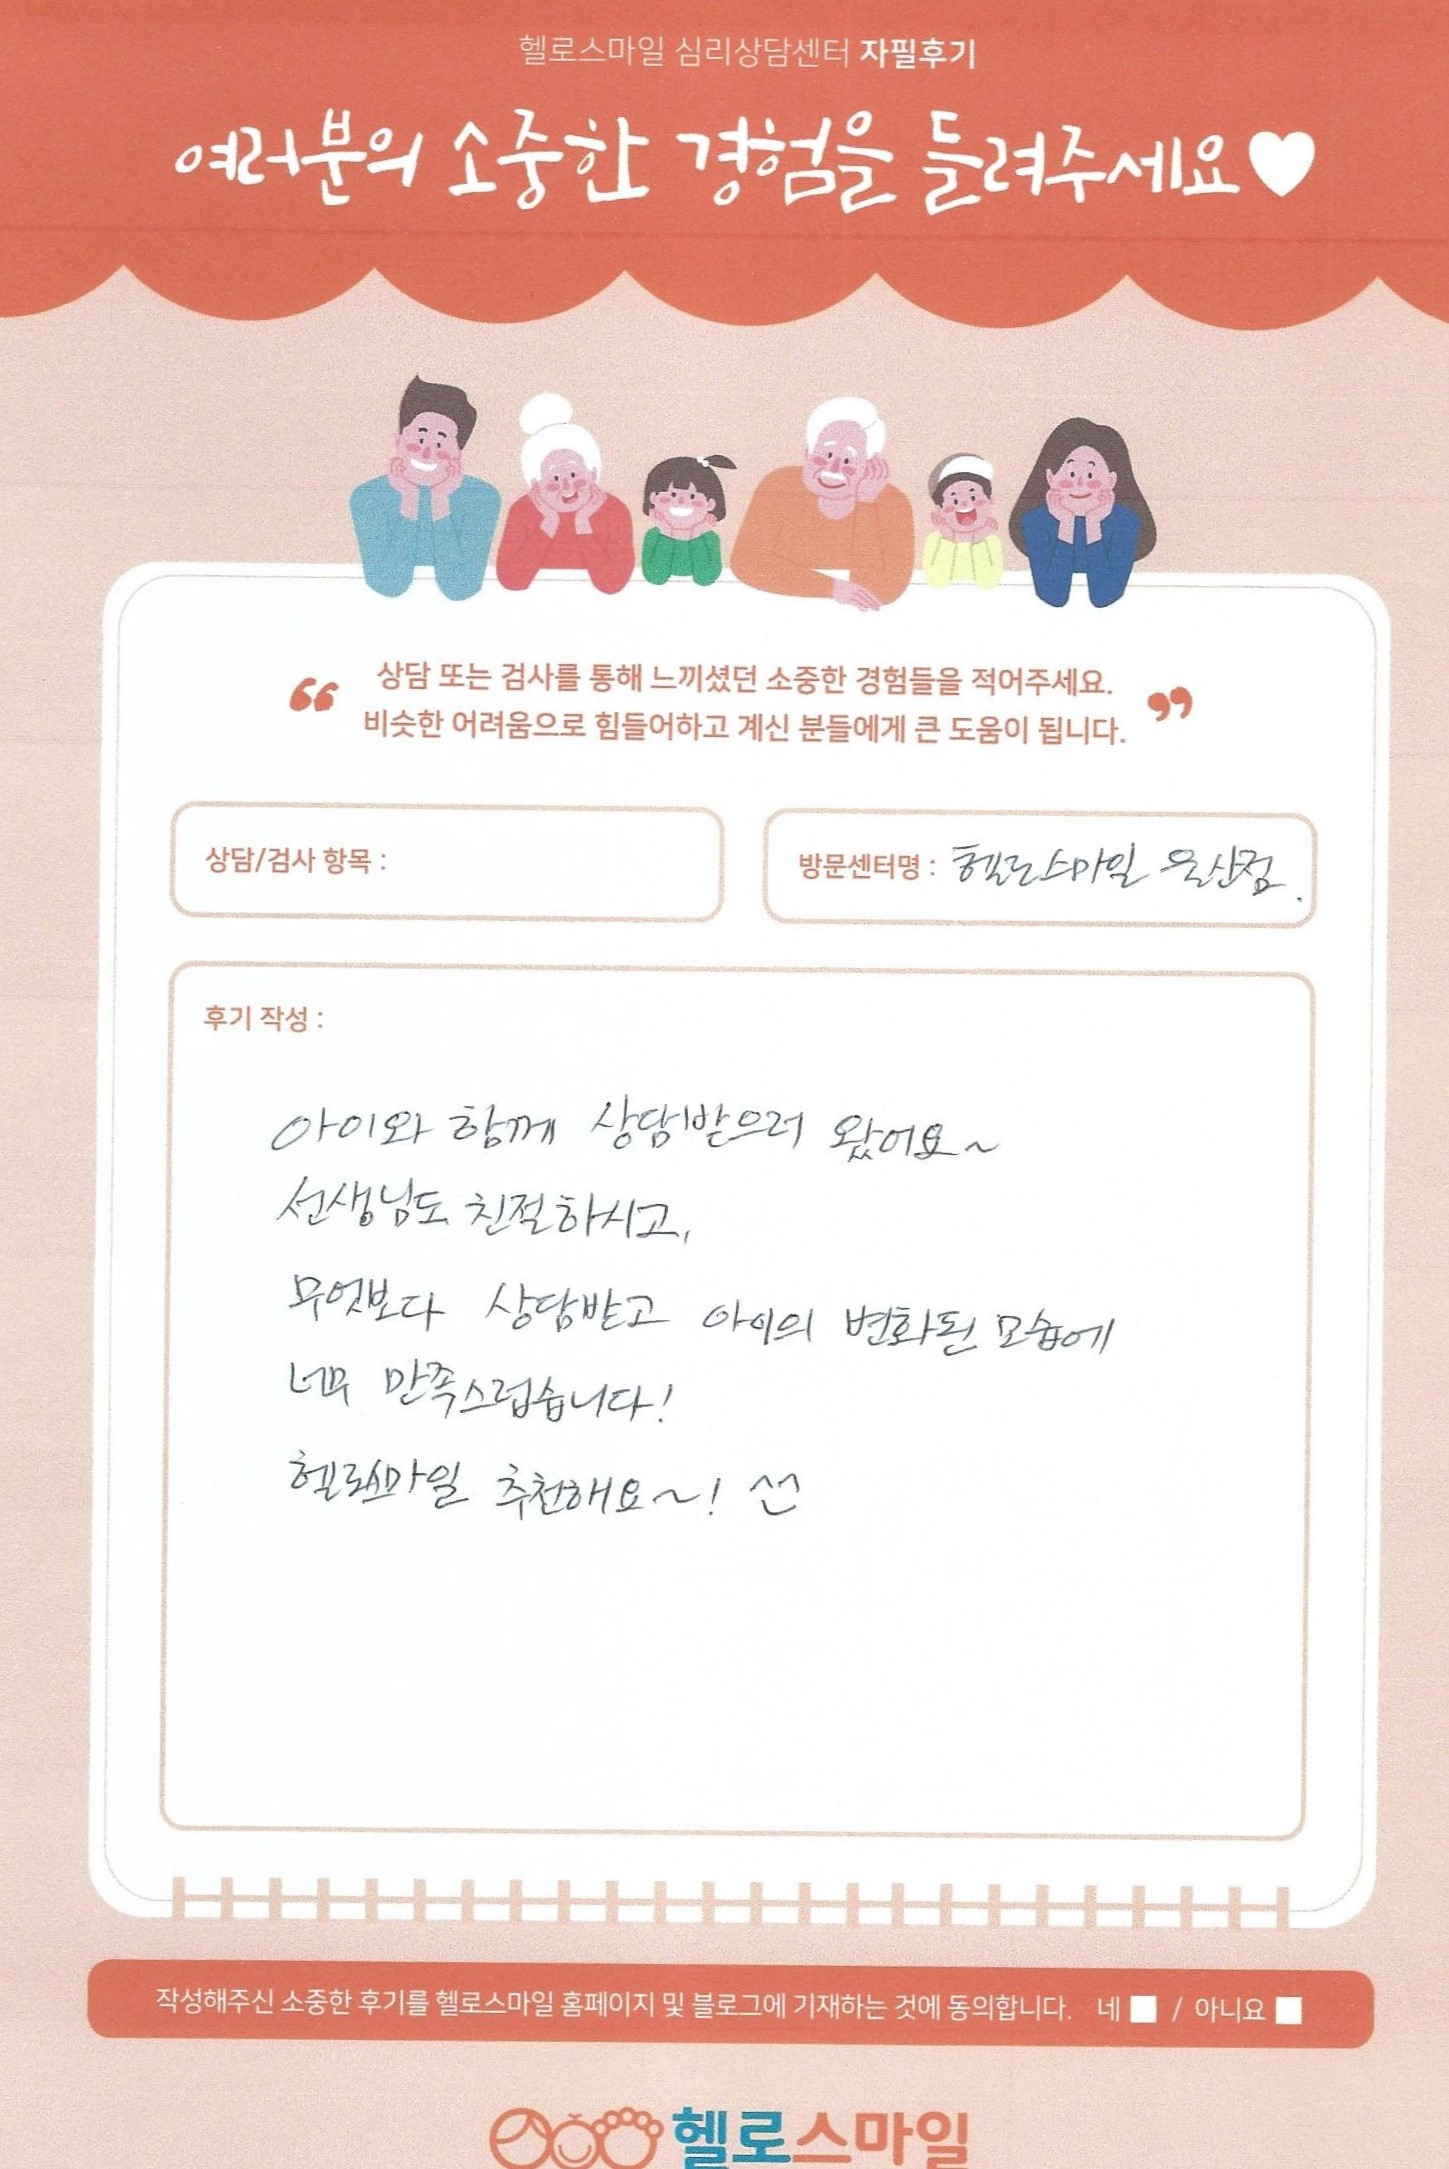 헬로스마일 심리상담센터 자필후기
여러분의 소중한 경험을 들려주세요♥
“ 상담 또는 검사를 통해 느끼셨던 소중한 경험들을 적어주세요.
비슷한 어려움으로 힘들어하고 계신 분들에게 큰 도움이 됩니다. ”
상담/검사 항목 :
방문센터명 : 헬로스마일 울산점.
후기 작성 :
아이와 함께 상담받으러 왔어요~
선생님도 친절하시고,
무엇보다 상담받고 아이의 변화된 모습에
너무 만족스럽습니다!
헬로스마일 추천해요~!
작성해주신 소중한 후기를 헬로스마일 홈페이지 및 블로그에 기재하는 것에 동의합니다. 네 ■ / 아니요 ■
헬로스마일